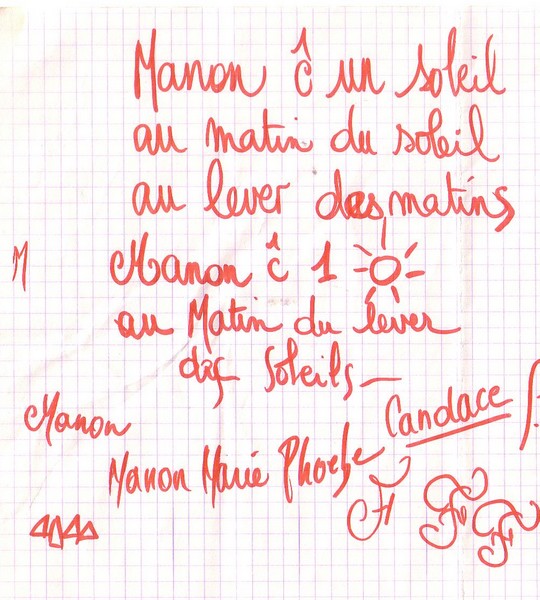 Manon ĉ un soleil
au matin du soleil
au lever des matins
M
Manon ĉ 1
au Matin du lever
des Soleils_
Manon
Candace
Manon Marie Phoebe
F F F